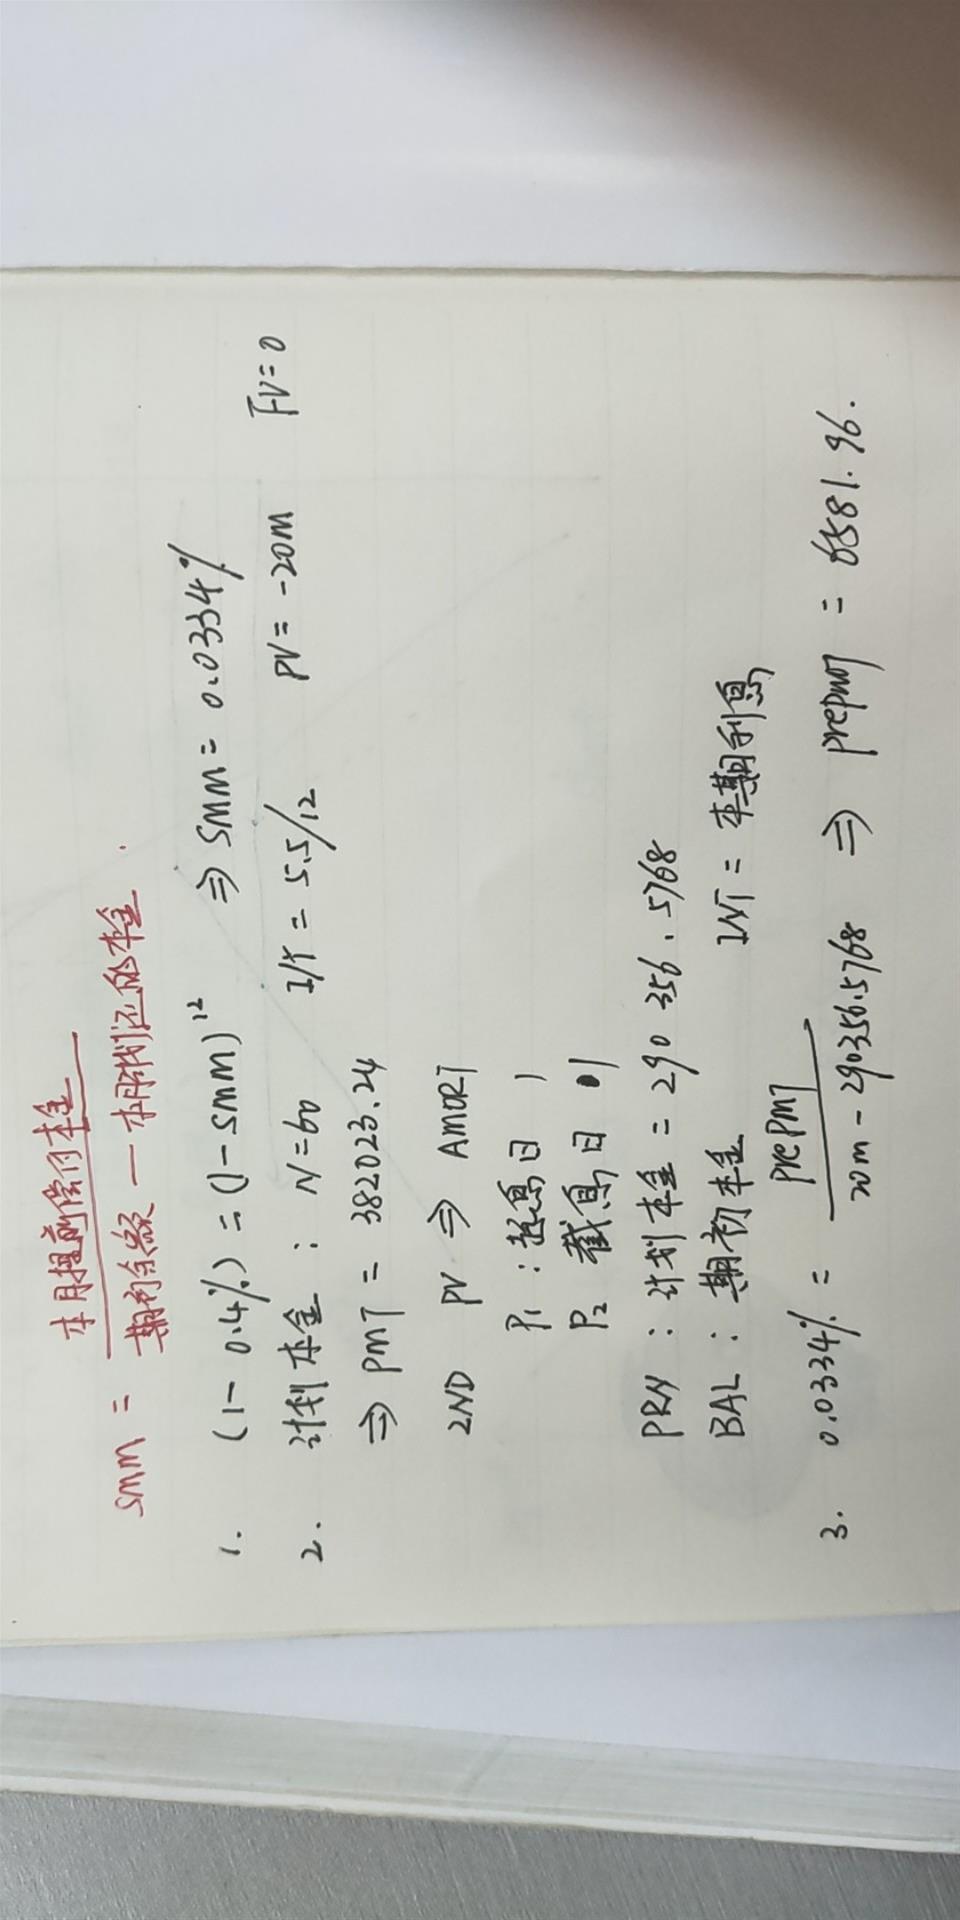 本月提前偿付本金
SMM = 期初余额 — 本月计划还的本金.
1. (1-0.4%) = (1-SMM)^12 ⇒ SMM = 0.0334%
2. 计划本金: N=60 I/Y = 5.5/12 PV = -20M FV=0
⇒ PMT = 382023.24
2ND PV ⇒ AMORT
P1 : 起息日 1
P2 截息日 1
PRN : 计划本金 = 290 356.5768
BAL : 期初本金 INT = 本期利息
3. 0.0334% = prePMT / 20m - 290356.5768 ⇒ prepmt = 6581.96.